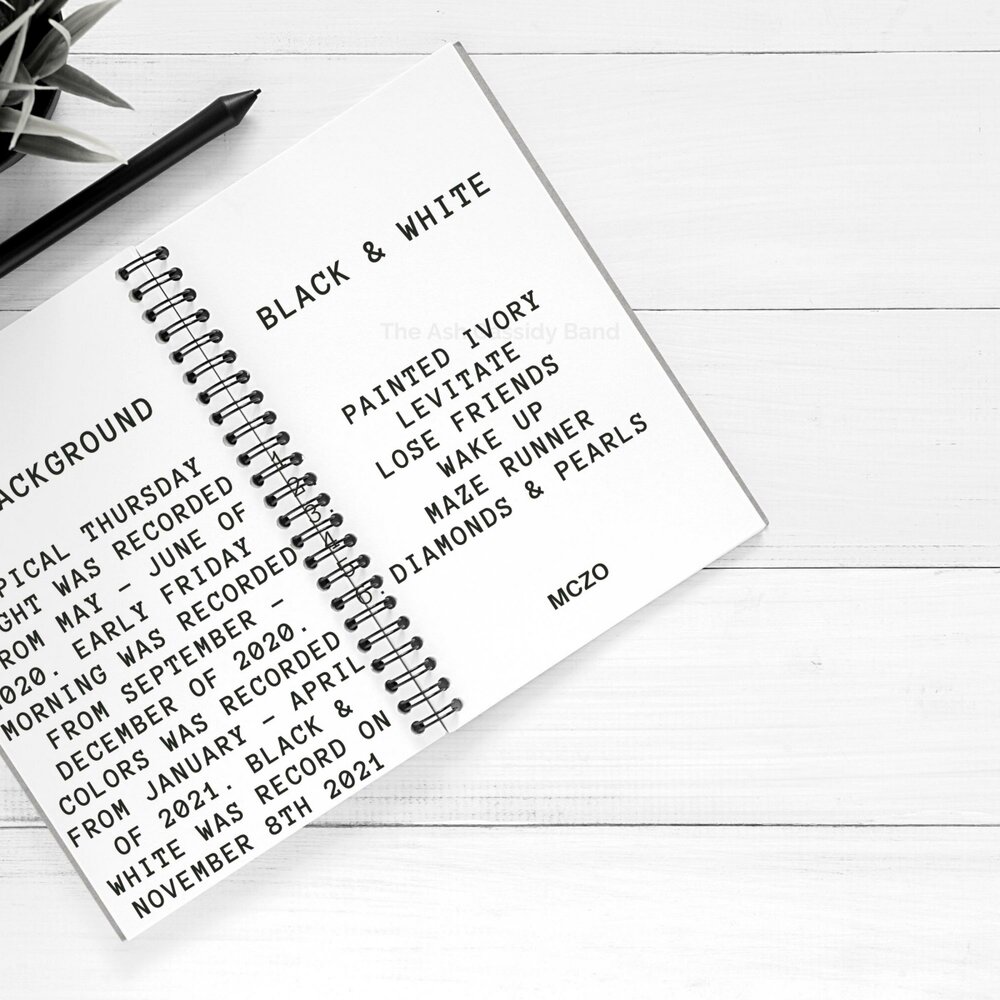 ACKGROUND
PICAL THURSDAY
GHT WAS RECORDED
ROM MAY – JUNE OF
020. EARLY FRIDAY
MORNING WAS RECORDED
FROM SEPTEMBER –
DECEMBER OF 2020.
COLORS WAS RECORDED
FROM JANUARY – APRIL
OF 2021. BLACK &
WHITE WAS RECORD ON
NOVEMBER 8TH 2021
BLACK & WHITE
The Ash Cassidy Band
1.
2.
3.
4.
5.
6.
PAINTED IVORY
LEVITATE
LOSE FRIENDS
WAKE UP
MAZE RUNNER
DIAMONDS & PEARLS
MCZO